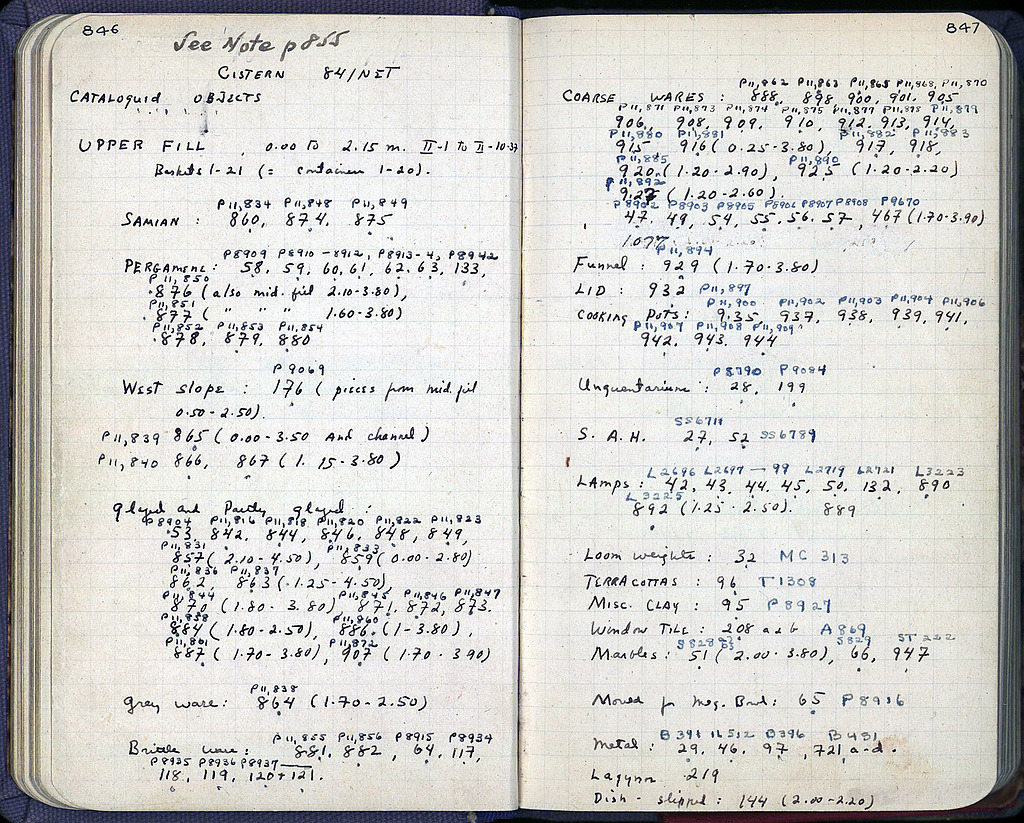 846
See Note p855
CISTERN 84/NET
CATALOGUED OBJECTS
UPPER FILL, 0.00 TO 2.15 m. II-1 to II-10-37
Baskets 1-21 (= container 1-20).
P11,834 P11,848 P11,849
SAMIAN: 860, 874, 875
P8909 P8910 - 8912, P8913-4, P8942
PERGAMENE: 58, 59, 60, 61, 62, 63, 133,
P11,850
876 (also mid. fill 2.10-3.80),
P11,851
877 ( " " " 1.60-3.80)
P11,852 P11,853 P11,854
878, 879, 880
P9069
West slope: 176 (pieces from mid. fill
0.50-2.50).
P11,839 865 (0.00-3.50 And channel)
P11,840 866, 867 (1.15-3.80)
glazed and Partly glazed:
P8904 P11,816 P11,818 P11,820 P11,822 P11,823
53, 842, 844, 846, 848, 849,
P11,831 P11,833
857 (2.10-4.50), 859 (0.00-2.80)
P11,836 P11,837
862, 863 (1.25-4.50),
P11,844 P11,845 P11,846 P11,847
870 (1.80-3.80), 871, 872, 873.
P11,858 P11,860
884 (1.80-2.50), 886 (1-3.80),
P11,861 P11,872
887 (1.70-3.80), 907 (1.70-3.90)
P11,838
grey ware: 864 (1.70-2.50)
P11,855 P11,856 P8915 P8934
Brittle ware: 881, 882, 64, 117,
P8935 P8936 P8937
118, 119, 120+121.
847
P11,862 P11,863 P11,865 P11,868, P11,870
COARSE WARES: 888, 898, 900, 901, 905
P11,871 P11,873 P11,874 P11,875 P11,877 P11,878 P11,879
906, 908, 909, 910, 912, 913, 914,
P11,880 P11,881 P11,882 P11,883
915 916 (0.25-3.80), 917, 918,
P11,885 P11,890
920 (1.20-2.90), 925 (1.20-2.20)
P11,892
927 (1.20-2.60).
P8902 P8903 P8905 P8906 P8907 P8908 P9670
47, 49, 54, 55, 56, 57, 467 (1.70-3.90)
1077
P11,894
Funnel: 929 (1.70-3.80)
LID: 932 P11,897
P11,900 P11,902 P11,903 P11,904 P11,906
COOKING POTS: 935, 937, 938, 939, 941,
P11,907 P11,908 P11,909
942, 943, 944
P8790 P9084
Unguentarium: 28, 199
SS6711
S. A. H. 27, 52 SS6789
L2696 L2697 - 99 L2719 L2721 L3223
LAMPS: 42, 43, 44, 45, 50, 132, 890
L3225
892 (1.25-2.50). 889
Loom weights: 32 MC 313
TERRACOTTAS: 96 T1308
Misc. CLAY: 95 P8927
Window TILE: 208 a+b A869
S829 ST 222
Marbles: 51 (2.00-3.80), 66, 947
Mould for Meg. Bowl: 65 P8916
B391 IL512 B396 B431
Metal: 29, 46, 97, 721 a-d.
Lagynon 219
Dish - slipped: 144 (2.00-2.20)